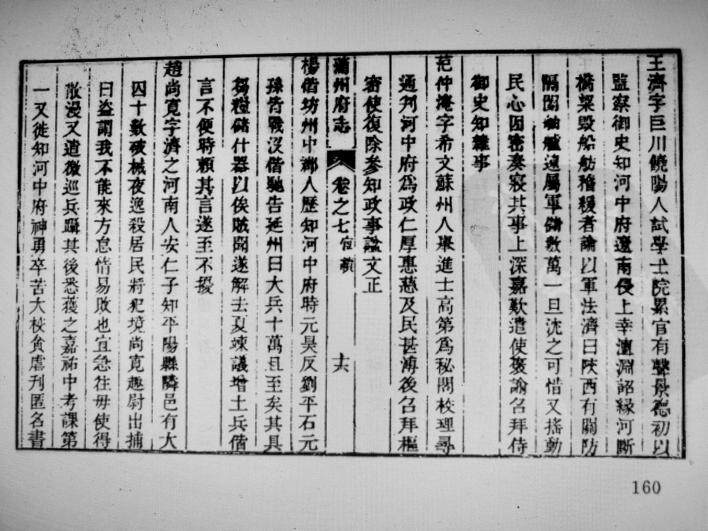 王濟字巨川饒陽人試學士院累官有聲景德初以
監察御史知河中府遼南侵上幸澶淵詔緣河斷
橋梁毀船舫稽緩者論以軍法濟曰陝西有關防
隔閡舳艫遠屬軍儲數萬一旦沈之可惜又搖動
民心因密奏寢其事上深嘉歎遣使褒諭召拜侍
御史知雜事
范仲淹字希文蘇州人舉進士高第爲秘閣校理尋
通判河中府爲政仁厚惠慈及民甚溥後召拜樞
密使復除參知政事諡文正
蒲州府志 卷之七 宦績 十六
楊偕坊州中部人歷知河中府時元昊反劉平石元
孫皆戰沒偕馳告延州曰大兵十萬且至矣其具
芻糧儲什器以俟賊聞遂解去夏竦議增土兵偕
言不便時頼其言遂至不擾
趙尚寬字濟之河南人安仁子知平陽縣隣邑有大
囚十數破械夜逸殺居民將犯境尚寬趣尉出捕
曰盜謂我不能來方怠惰易敗也宜急往毋使得
散漫又遣徼巡兵躡其後悉獲之嘉祐中考課第
一又徙知河中府神勇卒苦大校貪虐刋匿名書
160